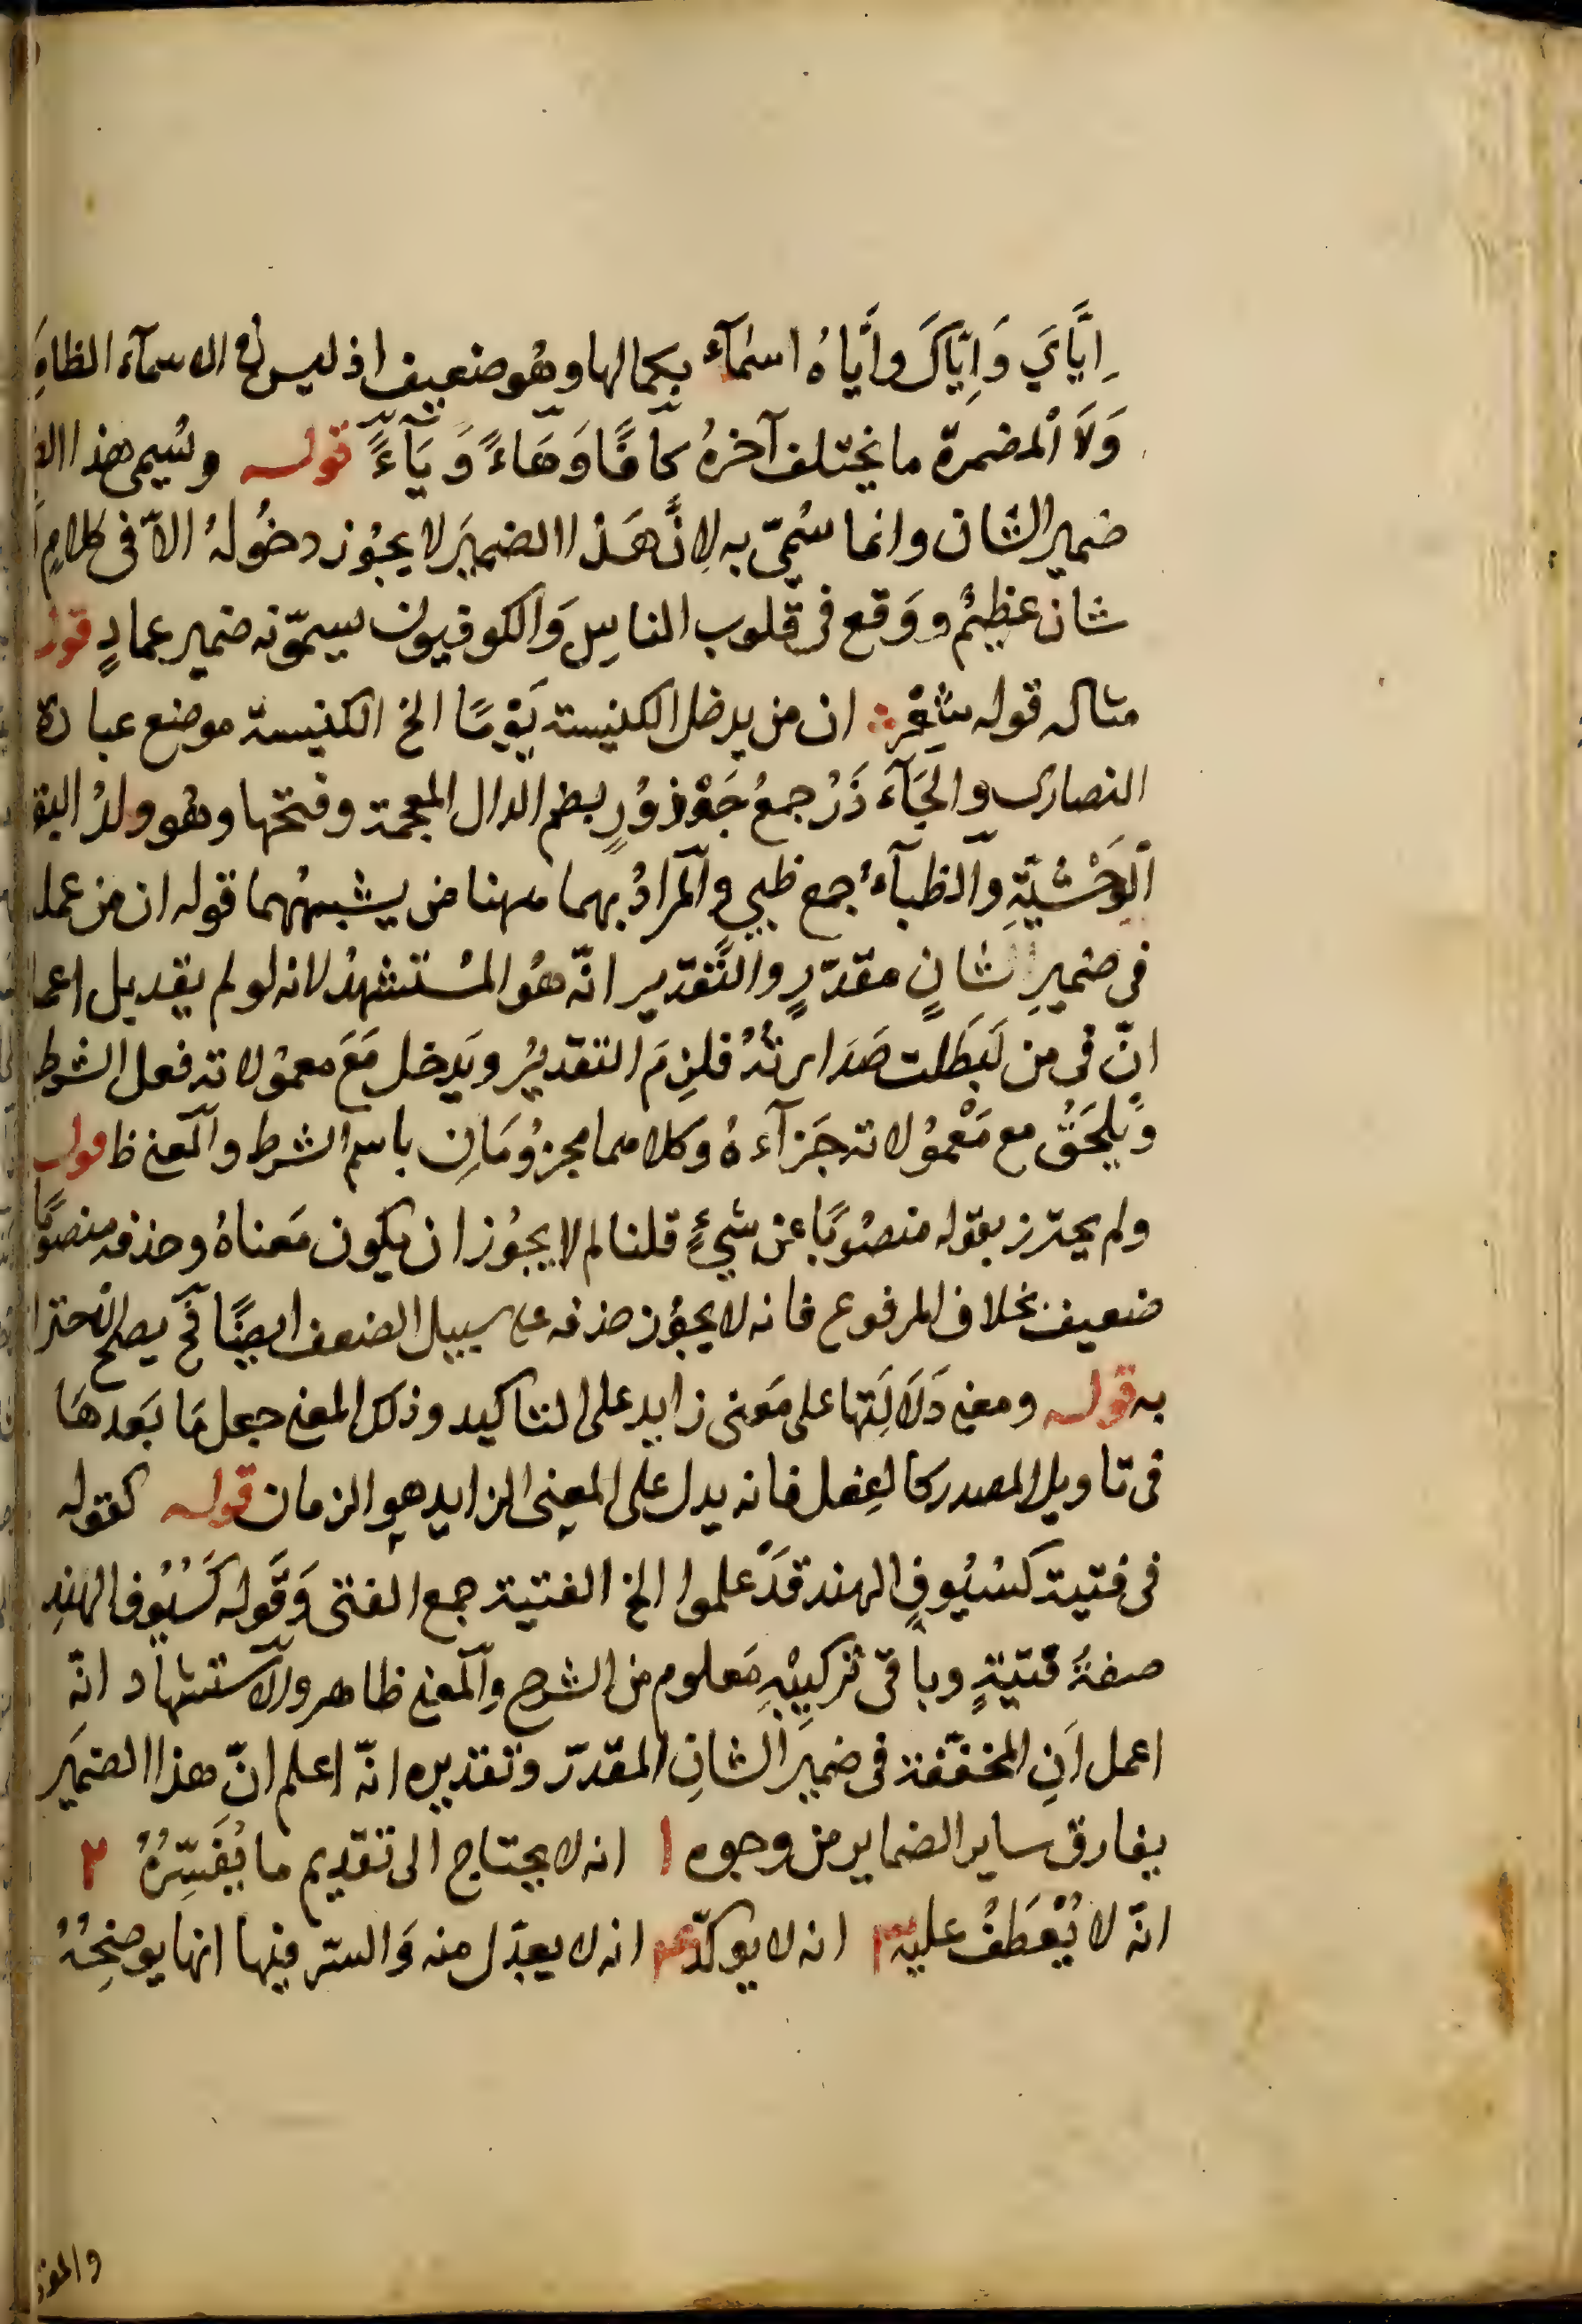 اِيَّايَ وَاِيَّاكَ وَاِيَّاهُ اسمآء بكمالها وهُو ضعيف اذ ليس فى الاسمآء الظاهِ
وَلاَ المضمرة ما يختلف آخرهُ كافًا وَهَاءً وَيَآءً قوله ويُسمى هذا
ضمير الشان وانما سُمىّ به لاِنَّ هَذا الضميَر لا يجوُز دخُولهُ الاّ فى كلامٍ
شان عظيمٌ ووَقع فى قلوب الناسِ وَالكوفيون يسمّونه ضمير عمادٍ قوله
مثاله قوله شعر ان من يدخل الكنيسة يَوْمًا الخ الكنيسة موضع عبادة
النصارى والجَآءَذَرُ جمعُ جَوْذوُرٍ بضم الدال المعجمة وفتحها وهُو ولدُ البقر
الوَحْشيّةِ والظبآءُ جمع ظبيٍ والمرادُ بهما ههنا من يشبههُما قوله ان من عمل
فى ضميرِ شانٍ مقدّرٍ والتَّقدير انّه هُو المُستشهدُ لانه لو لم يقد بل اعما
انّ فى من لَبَطلت صَدارتهُ فلزِمَ التقديرُ ويَدخل مَعَ معموُلاته فعل الشرط
وَيلحَقُ مع مَعْموُلاته جَزآءهُ وكلاهما مجزوُمَانِ باسم الشرط والمعنى ظ قوله
ولم يحترز بقوله منصُوبًا عن شىءٍ قلنا لم لا يجوُز ان يكون مَعناهُ وحذفه منصوبًا
ضعيف بخلاف المرفوع فانه لا يجوُز حذفه على سبيل الضعف ايضًا فح يصلح الاحترا
به قوله ومعنى دَلاَلَتها على مَعنى زايد على التاكيد وذلك المعنى جعل مَا بَعدهَا
فى تاويل المصدر كالفِعل فانه يدل على المعنى الزايد هو الزمان قوله كقوله
فى فتية كسُيُوفِ الهند قَدْ علموا الخ الفتية جمع الفتى وَقَوله كَسُيُوف الهندِ
صفةُ فتيةٍ وباقى تركيبهِ مَعلوم من الشرح والمعنى ظاهر والاستشهاد انّه
اعمل اَنِ المخفّفة فى ضميَر الشانِ المقدّر وتقديره انّه اعلم انّ هذا الضميَر
يفارق ساير الضماير من وجوه ١ انه لا يحتاج الى تقديم ما يُفَسّرُهُ ٢
انّه لا يُعْطَفُ عليه ٣ انه لا يوكدّ ٤ انه لا يبدَل منه وَالسّر فيها انها يوضحُهُ